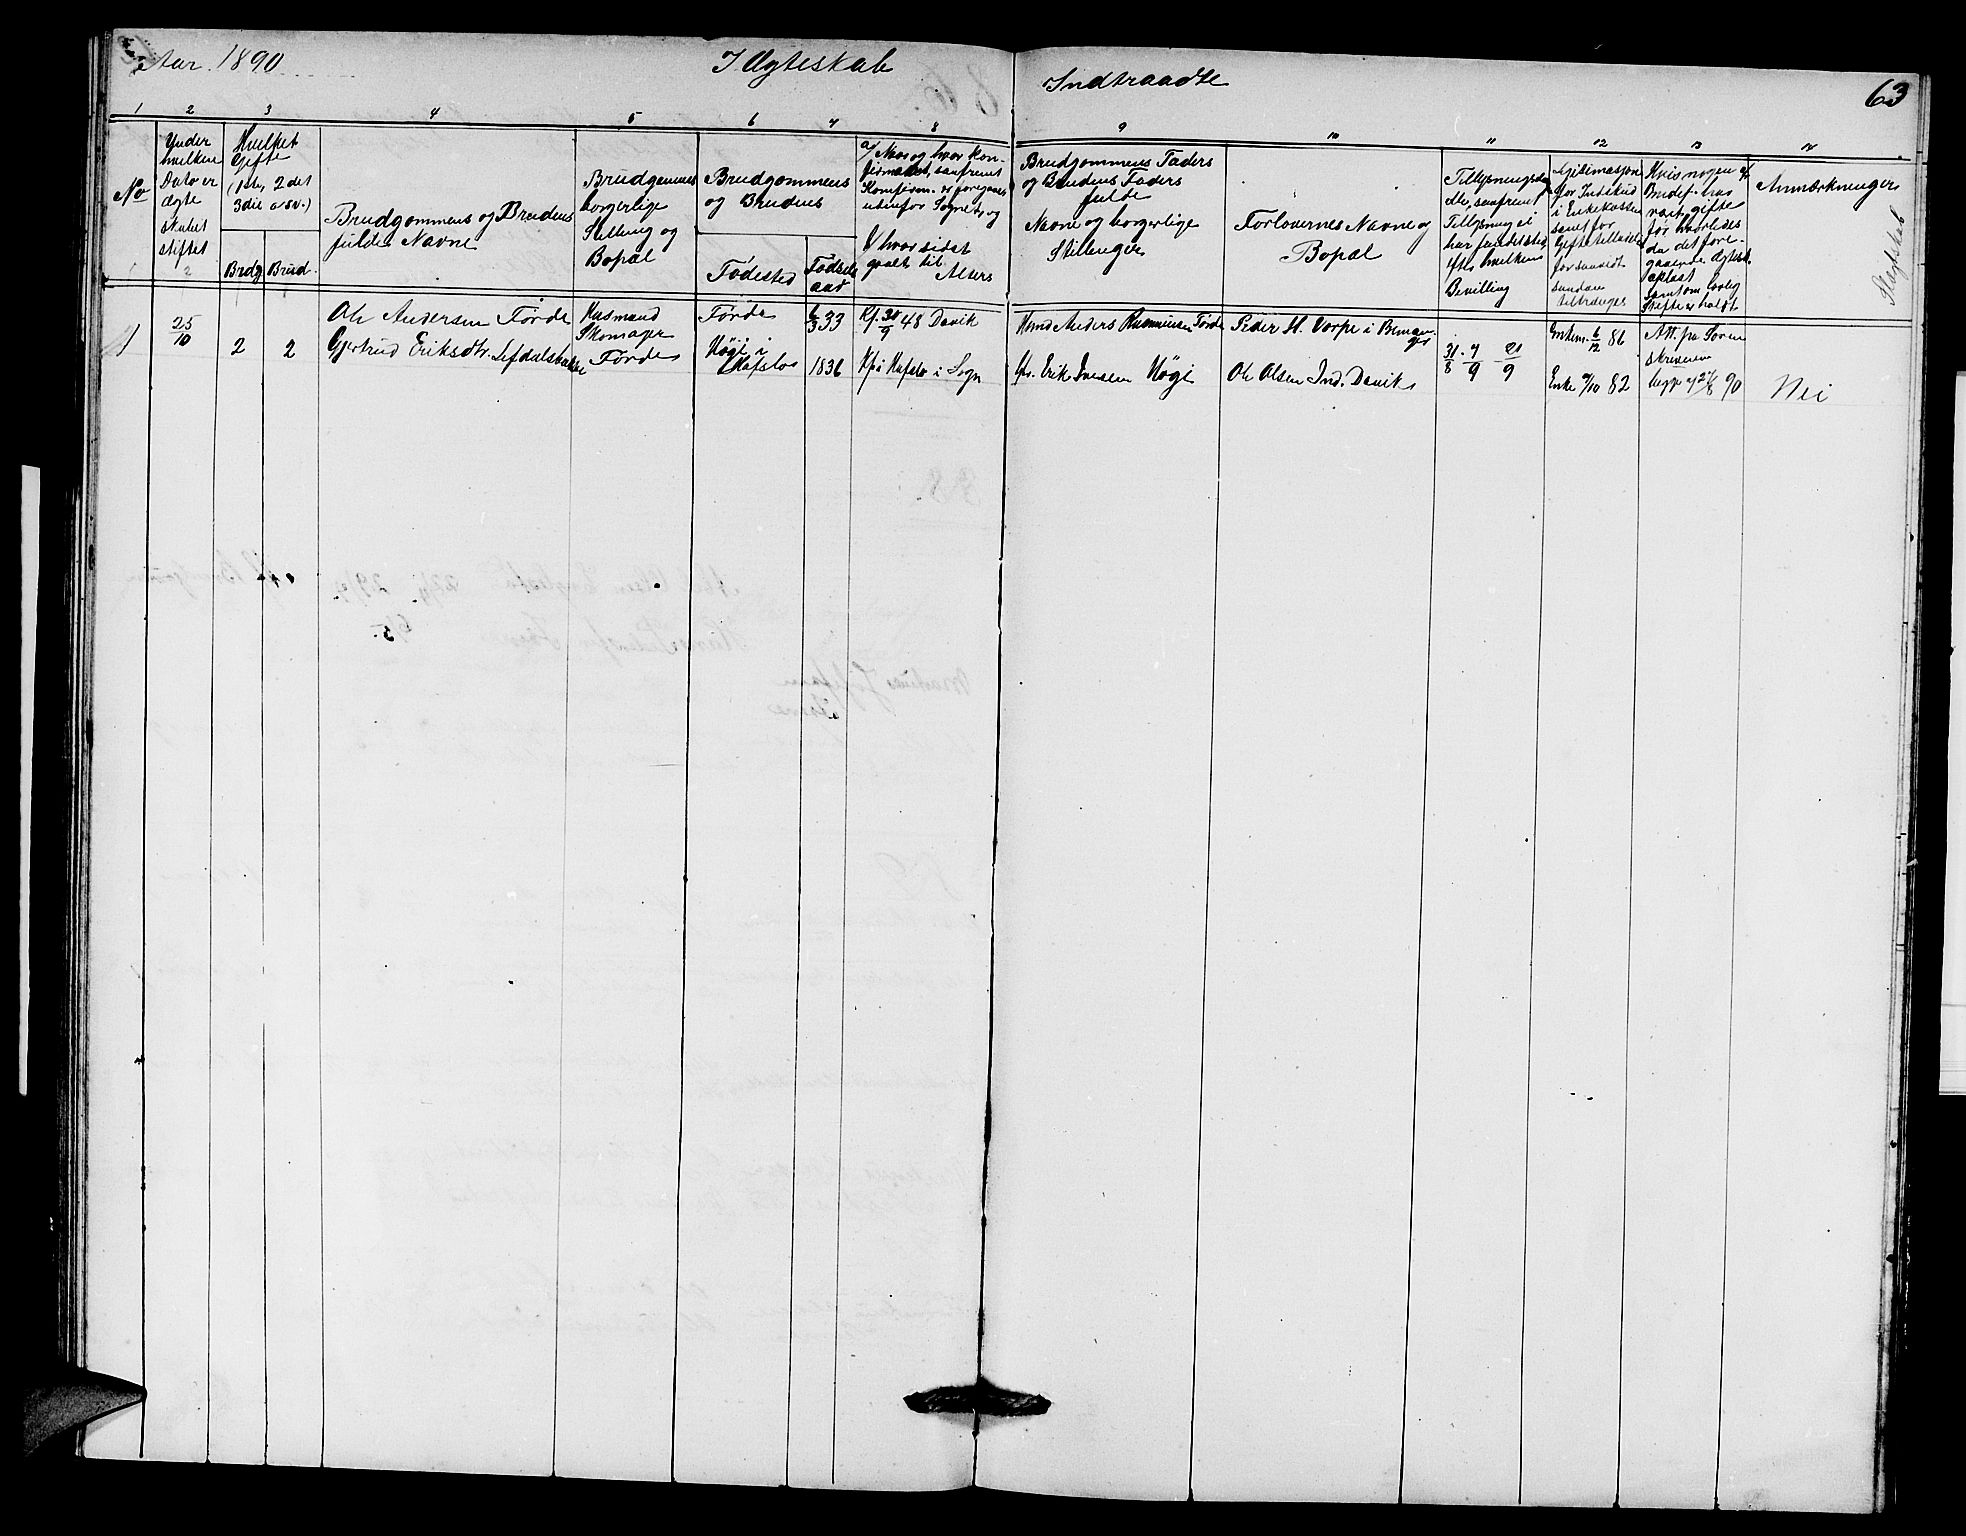 Aar 1890 I Ægteskab Indtraadte 63
1 2 3 4 5 6 7 8 9 10 11 12 13 14
No
Under
hvilken
Dato er
Ægte
skabet
stiftet
Hvilket
Gifte
(1ste, 2det
3die o.s.v.)
Brdg. Brud.
Brudgommens og Brudens
fulde Navne
Brudgommens
borgerlige
Stilling og
Bopæl
Brudgommens
og Brudens
Fødested
Fødsels
aar
a/ Naar og hvor kon-
firmeret, saafremt
Konfirm. er foregaaet
udenfor Sognet, og
b/ hvor sidst
gaaet til
Alters
Brudgommens Faders
og Brudens Faders
fulde
Navne og borgerlige
Stillinger
Forlovernes Navne og
Bopæl
Tillysningsda
eller, saafremt
Tillysning ei
har fundet sted,
efter hvilken
Bevilling
Legitimasjon
for Indskud
i Enkekassen
samt for
Giftetilladelse
forsaavidt
saadan
tiltrænges
Hvis nogen af
Brudef. har
været gifte
før hvorledes
da det fore-
gaaende Ægtesk.
opløst
samt om lovlig
Skifte er holdt
Anmærkninger
Slegtskab
1 25/10 2 2
Ole Andersen Førde
Gjertrud Eriksdtr. Lefdalsbakke
Husmand
Skomager
Førde
Førde
Høgi i
Hafslo
6/3 33
1836
Kf. 30/9 48 Davik
Kf. i Hafslo i Sogn
Husmd Anders Rasmussen Førde
Gbr. Erik Iversen Høgi
Peder H. Vorpe i Breman-
ger
Ole Olsen Ind. Davik
31/8 . 7/9 21/9
Enkem. 6/12 86
Enke 9/10 82
Att. fra Soren
skriveren
begge af 27/8 90
Nei